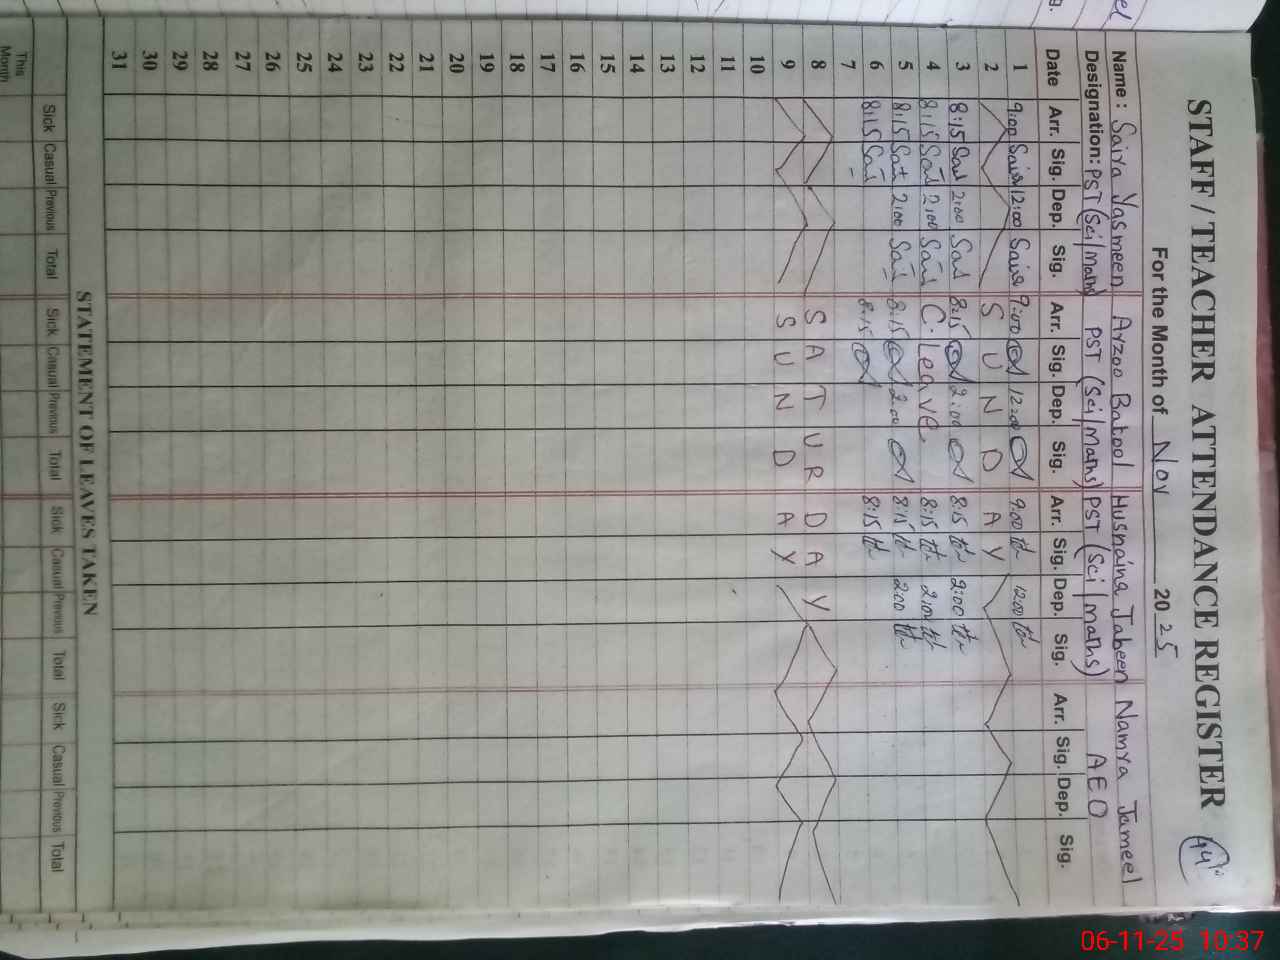 STAFF / TEACHER ATTENDANCE REGISTER
44
For the Month of Nov 2025
Name : Saira Yasmeen Arzoo Batool Husnaina Jabeen Namra Jameel
Designation: PST (Sci/Math) PST (Sci/Maths) PST (Sci/maths) AEO
Date Arr. Sig. Dep. Sig. Arr. Sig. Dep. Sig. Arr. Sig. Dep. Sig. Arr. Sig. Dep. Sig.
1 9:00 Saira 12:00 Saira 9:00 12:00 9:00 12:00
2 S U N D A Y
3 8:15 2:00 8:15 2:00 8:15 2:00
4 8:15 2:00 C. Leave 8:15 2:00
5 8:15 2:00 8:15 2:00 8:15 2:00
6 8:15 8:15 8:15
7
8 S A T U R D A Y
9 S U N D A Y
10
11
12
13
14
15
16
17
18
19
20
21
22
23
24
25
26
27
28
29
30
31
STATEMENT OF LEAVES TAKEN
Sick Casual Previous Total Sick Casual Previous Total Sick Casual Previous Total Sick Casual Previous Total
This Month
06-11-25 10:37